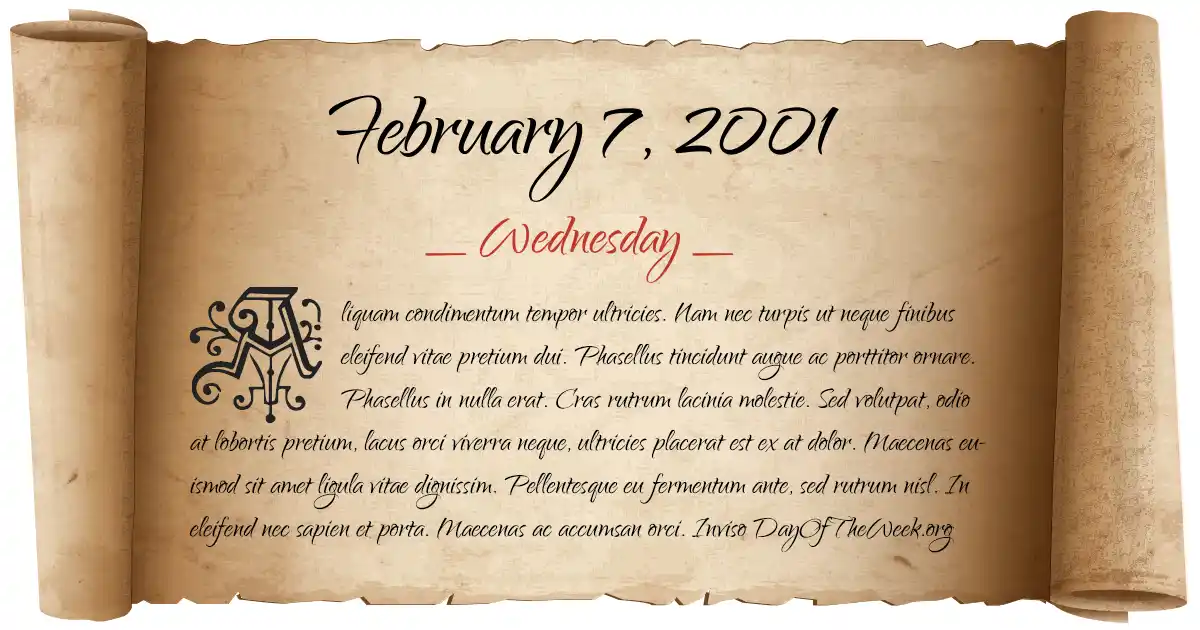 February 7, 2001
__ Wednesday __
Aliquam condimentum tempor ultricies. Nam nec turpis ut neque finibus
eleifend vitae pretium dui. Phasellus tincidunt augue ac porttitor ornare.
Phasellus in nulla erat. Cras rutrum lacinia molestie. Sed volutpat, odio
at lobortis pretium, lacus orci viverra neque, ultricies placerat est ex at dolor. Maecenas eu-
ismod sit amet ligula vitae dignissim. Pellentesque eu fermentum ante, sed rutrum nisl. In
eleifend nec sapien et porta. Maecenas ac accumsan orci. Inviso DayOfTheWeek.org